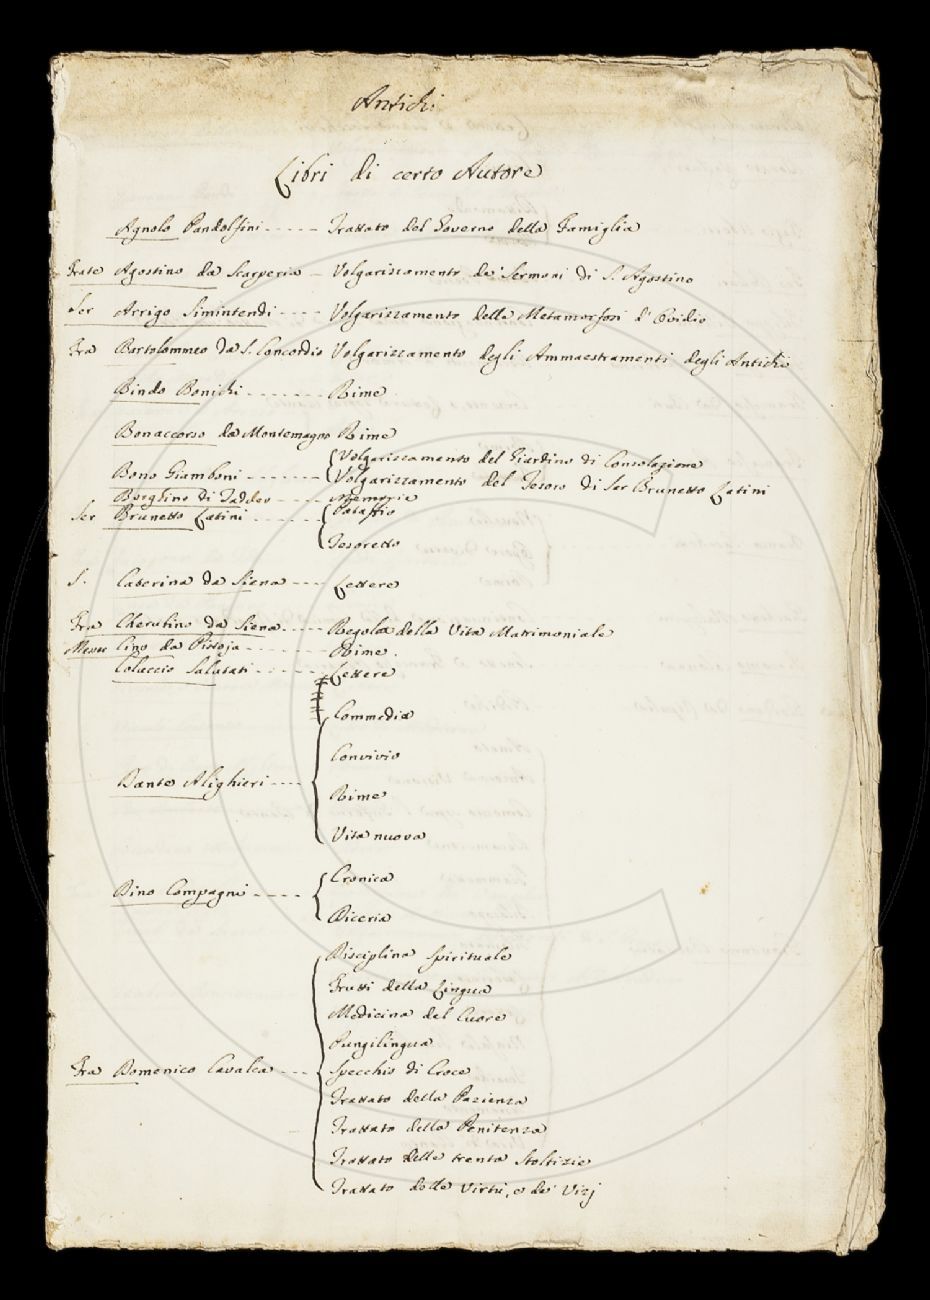 Antichi
Libri di certo Autore
Agnolo Pandolfini ----- Trattato del Governo della Famiglia
Frate Agostino da Scarperia - Volgarizzamento de' Sermoni di S. Agostino
Ser Arrigo Simintendi ---- Volgarizzamento delle Metamorfosi d'Ovidio
Fra Bartolommeo da S. Concordio Volgarizzamento degli Ammaestramenti degli Antichi
Bindo Bonichi ------- Rime
Bonaccorso da Montemagno Rime
Volgarizzamento del Giardino di Consolazione
Bono Giamboni ------ Volgarizzamento del Tesoro di Ser Brunetto Latini
Borghino di Taddeo ---- Memoria
Ser Brunetto Latini ------ Pataffio
Tesoretto
S. Caterina da Siena ---- Lettere
Fra Cherubino da Siena ---- Regola della Vita Matrimoniale
Messer Cino da Pistoja ------- Rime.
Coluccio Salutati ------ Lettere
Commedia
Convivio
Dante Alighieri ----
Rime
Vita nuova
Cronica
Dino Compagni ----
Diceria
Disciplina Spirituale
Frutti della Lingua
Medicina del Cuore
Pungilingua
Fra Domenico Cavalca --- Specchio di Croce
Trattato della Pazienza
Trattato della Penitenza
Trattato delle trenta Stoltizie
Trattato delle Virtù, e de' Vizj